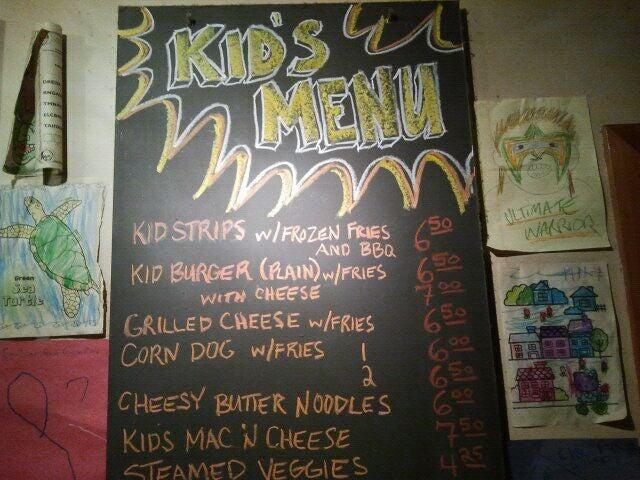 KID'S
MENU
KID STRIPS W/FROZEN FRIES 6 50
AND BBQ
KID BURGER (PLAIN) W/FRIES 6 50
WITH CHEESE 7 00
GRILLED CHEESE W/FRIES 6 50
CORN DOG W/FRIES 1 6 00
2 6 50
CHEESY BUTTER NOODLES 6 00
KIDS MAC 'N CHEESE 7 50
STEAMED VEGGIES 4 25
Green
Sea
Turtle
ULTIMATE
WARRIOR
7